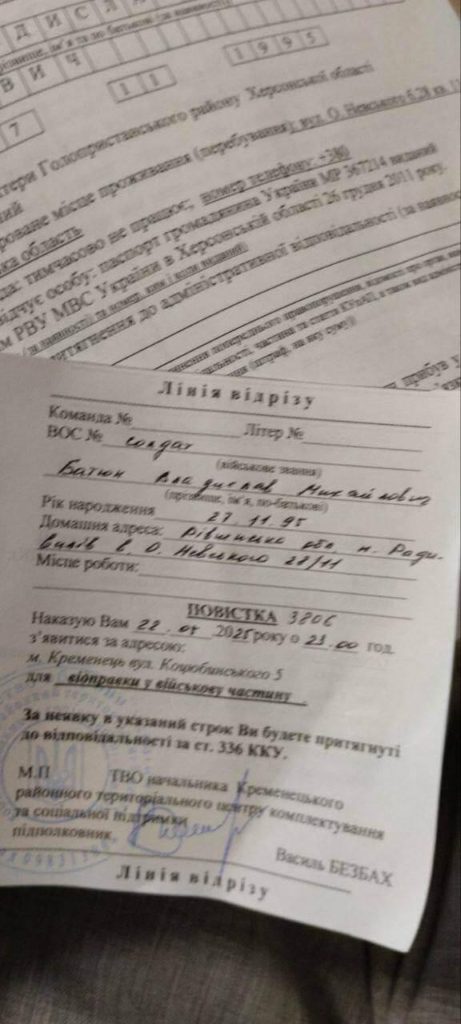 Д И С Л А
В И Ч
7 11 1995
тери Голопристанського району Херсонської області
місце проживання (перебування): вул. О. Невського б.28 кв.
ка область
тимчасово не працює; номер телефону: +380
відчує особу: паспорт громадянина України МР 367214 виданий
м РВУ МВС України в Херсонській області 26 грудня 2011 року.
(за наявності) та номер, ким і коли виданий)
до адміністративної відповідальності (за наявності
прибув у
Лінія відрізу
Команда № Літер №
ВОС № солдат
(військове звання)
Батюк Владислав Михайлович
(прізвище, ім'я, по-батькові)
Рік народження 27.11.95
Домашня адреса: Рівненська обл. м. Ради-
вилів в. О. Невського 28/11
Місце роботи:
ПОВІСТКА 3806
Наказую Вам 28.05 2025 року о 23.00 год.
з'явитися за адресою:
м. Кременець вул. Коцюбинського 5
для відправки у військову частину.
За неявку в указаний строк Ви будете притягнуті
до відповідальності за ст. 336 ККУ.
М.П ТВО начальника Кременецького
районного територіального центру комплектування
та соціальної підтримки
підполковник
Василь БЕЗБАХ
Лінія відрізу